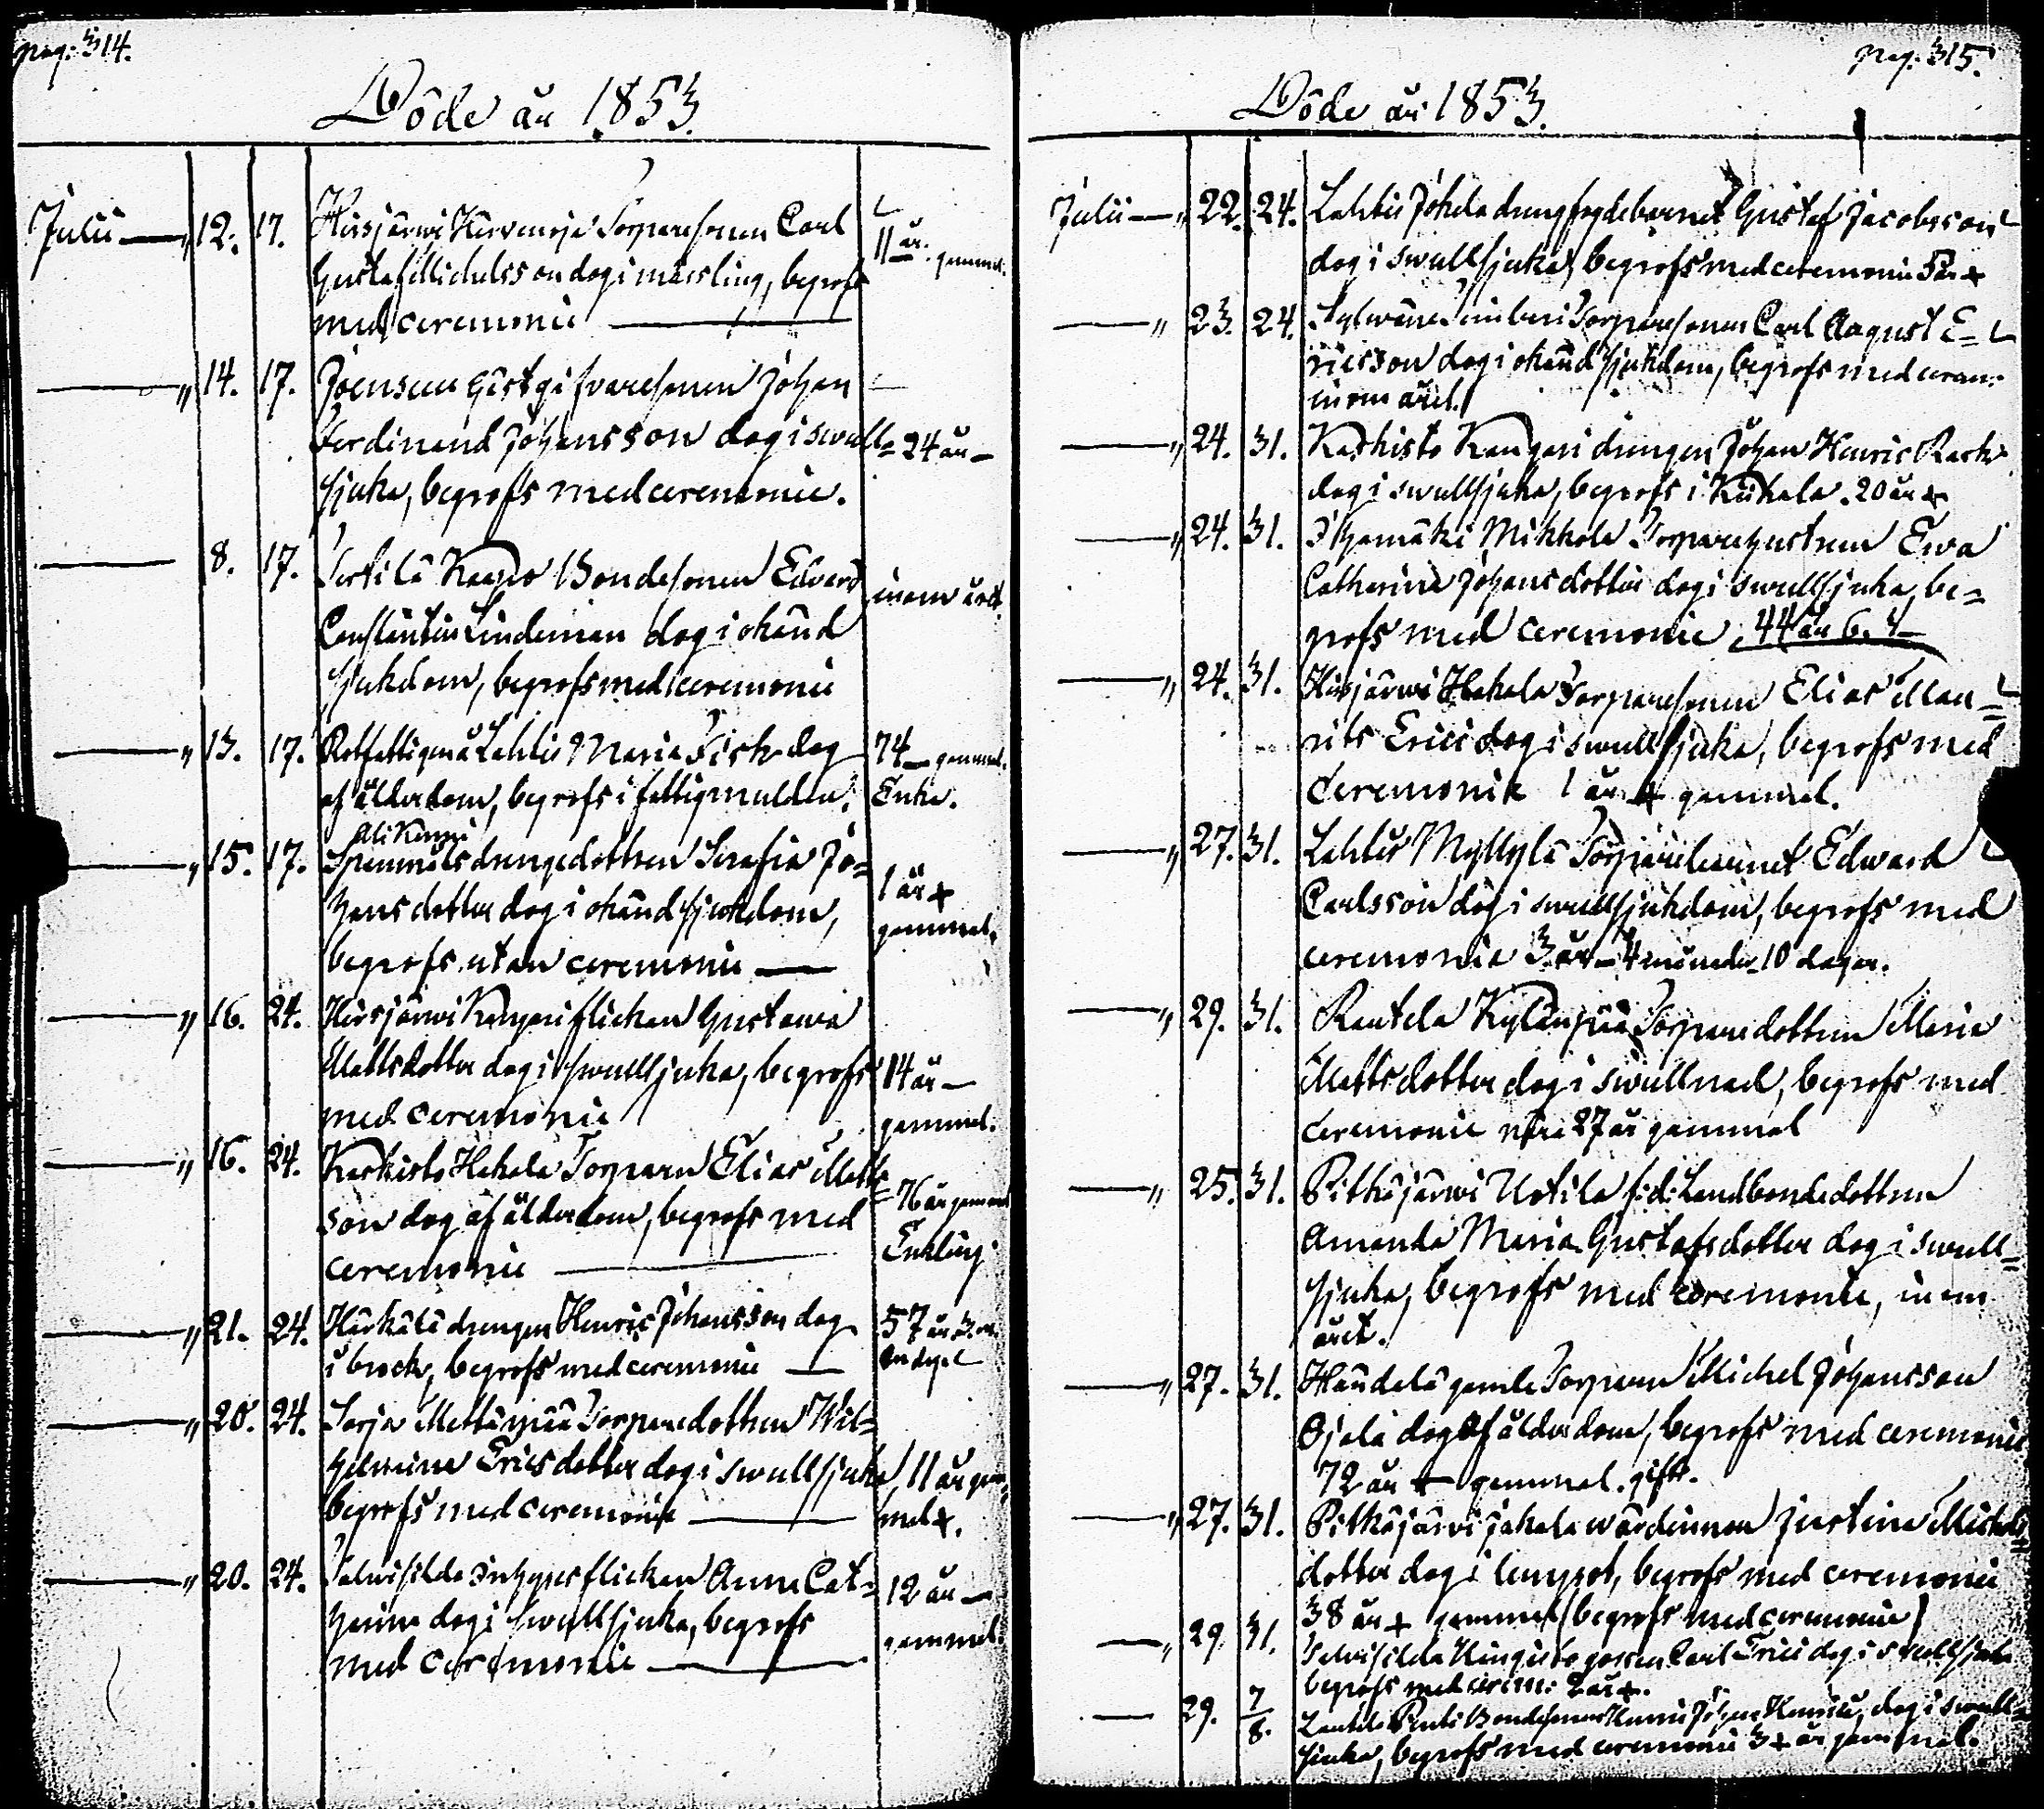 pag: 314.
Döde år 1853.
Julii — " 12. 17. Hirsjärwi Torparesonen Carl 11 år. gammal.
Gustaf Michelsson dog i mässling, begrofs
med ceremonie —
— " 14. 17. Joensuu Gästgifvaresonen Johan
Ferdinand Johansson dog i swull= 24 år —
sjuka, begrofs med ceremonie.
— 8. 17. Terttilä Kauppi Bondesonen Edvard
Constantin Lindeman dog i okänd inom året.
sjukdom, begrofs med ceremonie
— " 13. 17. Rotfattiga på Lahtis Maria Fisk dog 74 — gammal.
af ålderdom, begrofs i fattigmullden. Enka.
Ali Kauppi
— " 15. 17. Spannmålsdrängedottren Serafia Jo=
hansdotter dog i okänd sjukdom, 1 år +
begrofs utan ceremonie — gammal.
— " 16. 24. Hirsjärwi Kangari flickan Gustawa
Mattsdotter dog i swullsjuka, begrofs 14 år —
med ceremonie gammal.
— " 16. 24. Kaskisto Hakala Torparen Elias Matts=
son dog af ålderdom, begrofs med 76 år gammal
ceremonie — Enkling
— " 21. 24. Härkälä drengen Henric Johansson dog 57 år 3 m.
i brock, begrofs med ceremonie —
— " 20. 24. Sorja Mattanpää Torparedottren Wil=
helmina Ericsdotter dog i swullsjuka, 11 år gam=
begrofs med ceremonie — mal +.
— " 20. 24. Talwisilda Inhyses flickan Anna Cat= 12 år —
harina dog i swullsjuka, begrofs gammal.
med ceremonie —
pag: 315.
Döde år 1853.
Julii — " 22. 24. Lahtis Jokela drengfogdebarnet Gustaf Jacobsson
dog i swullsjuka, begrofs med ceremonie 5 år +
— " 23. 24. Torparesonen Carl August E=
ricsson dog i okänd sjukdom, begrofs med cerem:
inom året.
— " 24. 31. Kaskisto Kangari drengen Johan Henric Rask
dog i swullsjuka, begrofs i Kiikala. 20 år +
— " 24. 31. Ihamäki Mikkola Torparehustrun Ewa
Catharina Johansdotter dog i swullsjuka, be=
grofs med ceremonie, 44 år 6. 4
— " 24. 31. Hirsjärwi Hakala Torparesonen Elias Mau=
rits Erici dog i swullsjuka, begrofs med
ceremonie 1 år + gammal.
— " 27. 31. Lahtis Myllylä Torparebarnet Edward
Carlsson dog i swullsjukdom, begrofs med
ceremonie 3 år — 4 månader 10 dagar.
— " 29. 31. Rautela Kylänpää Torparedottren Maria
Mattsdotter dog i swullnad, begrofs med
ceremonie nära 27 år gammal
— " 25. 31. Pitkäjärwi Uotila f: d: Landbondedottren
Amanda Maria Gustafsdotter dog i swull=
sjuka, begrofs med ceremonie, inom
året.
— " 27. 31. Händelä gamle Torparen Michel Johansson
Ojala dog af ålderdom, begrofs med ceremonie
72 år + gammal. gift.
— " 27. 31. Pitkäjärwi Jakala wärdinnan Justina Michels=
dotter dog i lungsot, begrofs med ceremonie
38 år + gammal (begrofs med ceremonie)
— " 29. 31. Talwisilda gossen Carl Erici dog i swullsjuka
begrofs med cerem: 2 år +.
— 29. 7/8. Bondesonen Johan Henrici, dog i swull=
sjuka, begrofs med ceremonie 3 + år gammal.